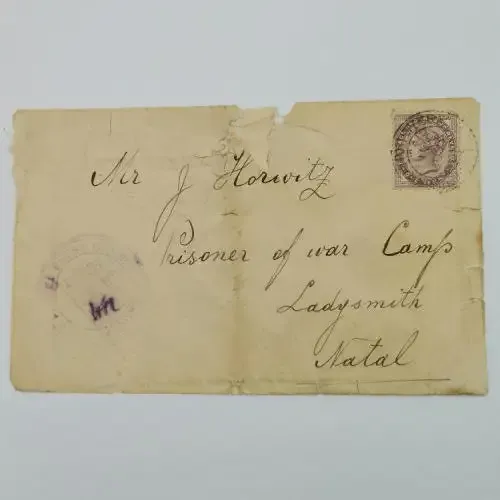 Mr J Horwitz
Prisoner of war Camp
Ladysmith
Natal